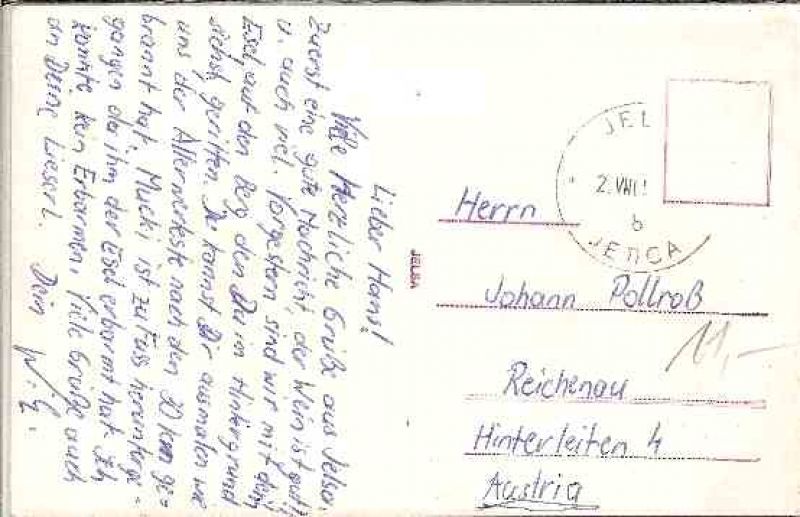 Lieber Hans!
Viele Herzliche Grüße aus Jelsa.
Zuerst eine gute Nachricht, der Wein ist gut,
u. auch viel. Vorgestern sind wir mit dem
Esel, auf den Berg den Du im Hintergrund
siehst, geritten. Du kannst Dir ausmalen wie
uns der Allerwerteste nach den 20 km ge-
brannt hat. Mucki ist zu Fuss herumge-
gangen da ihm der Esel erbarmt hat. Ich
kannte kein Erbarmen. Viele Grüße auch
an Deine Lieserl. Dein
JELSA
JEL
2. VIII
b
ЈЕЛСА
Herrn
Johann Pollroß
11,-
Reichenau
Hinterleiten 4
Austria